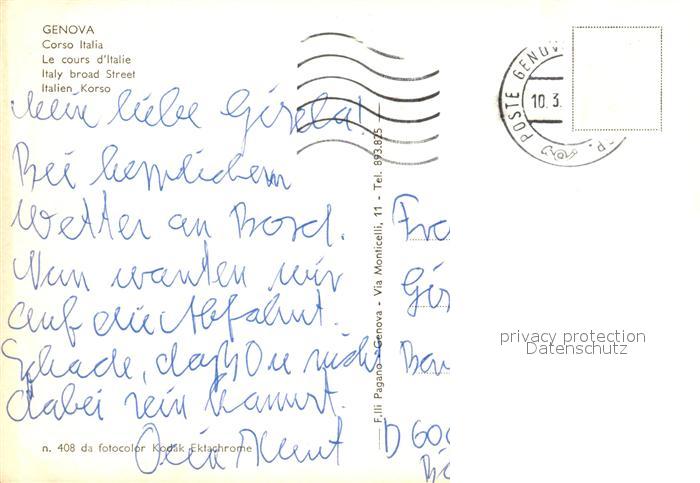 GENOVA
Corso Italia
Le cours d'Italie
Italy broad Street
Italien Korso
Mein liebe Gisela!
Bei herrlichem
Wetter an Bord.
Nun warten wir
auf die Abfahrt.
Schade, daß Du nicht
dabei sein kannst.
Dein Kurt
n. 408 da fotocolor Kodak Ektachrome
F.lli Pagano - Genova - Via Monticelli, 11 - Tel. 893.825
POSTE GENOV
10.3.
Fra
Gis
D 600
privacy protection
Datenschutz